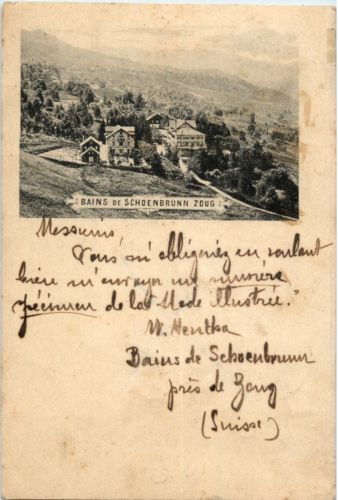 BAINS DE SCHOENBRUNN ZOUG
Messieurs,
Vous m'obligeriez en voulant
bien m'envoyer un numéro
spécimen de "La Mode Illustrée."
W. Hentka
Bains de Schoenbrunn
près de Zoug
(Suisse)